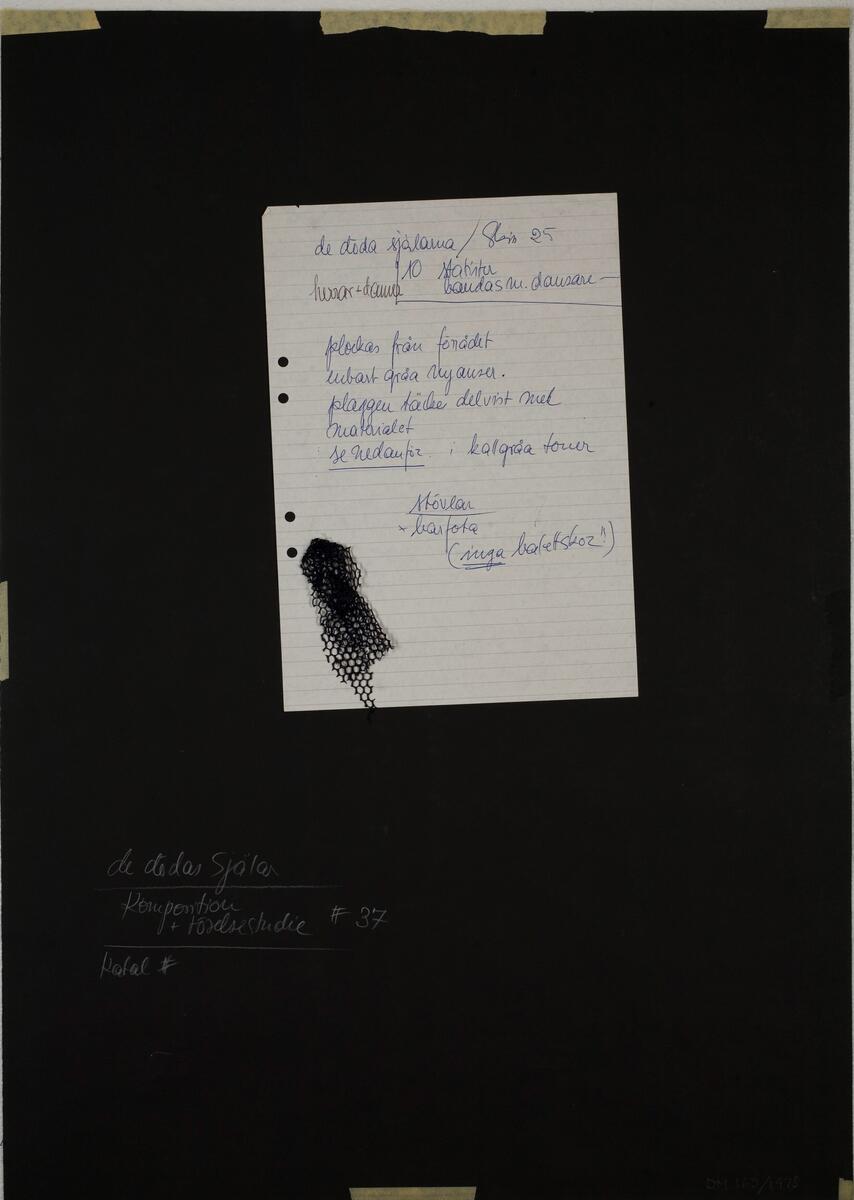 de döda själarna / Skiss 25
10 statister
herrar + damer blandas m. dansare
plockas från förrådet
enbart gråa nyanser.
plaggen täckes delvist med
materialet
se nedanför. i kallgråa toner
stövlar
x barfota
(inga balettskor!!)
de dödas Själar
Komposition
+ rörelsestudie # 37
Katal #
DM 163/1978